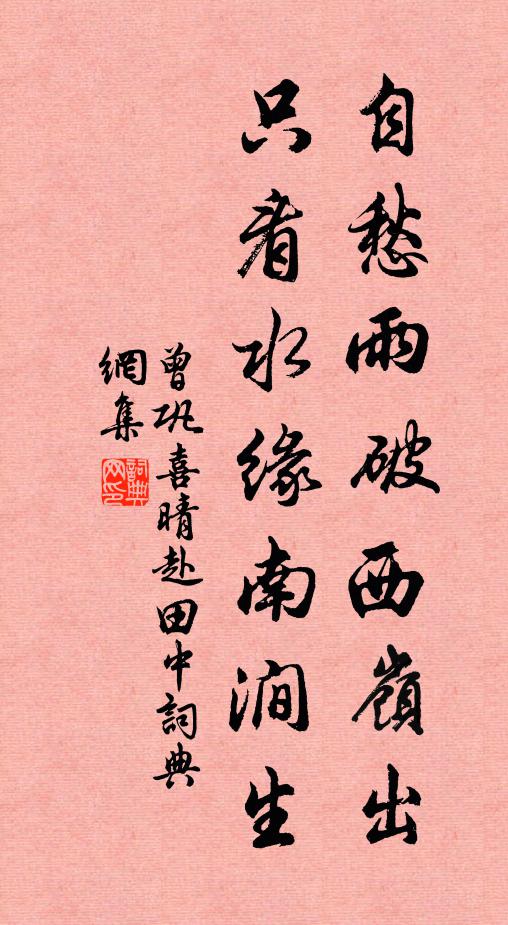 自愁雨破西嶺出
只看水緣南澗生
曾巩喜晴赴田中詞典
網集
詞典
网印